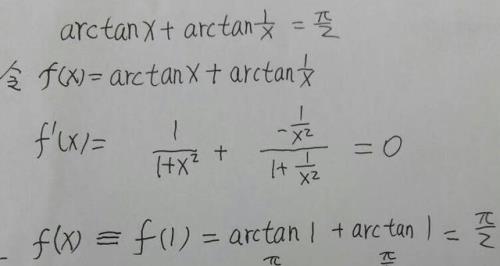 arctanx + arctan 1/x = π/2
令 f(x) = arctanx + arctan 1/x
f'(x) = 1/(1+x²) + (-1/x²)/(1+1/x²) = 0
f(x) ≡ f(1) = arctan 1 + arctan 1 = π/2